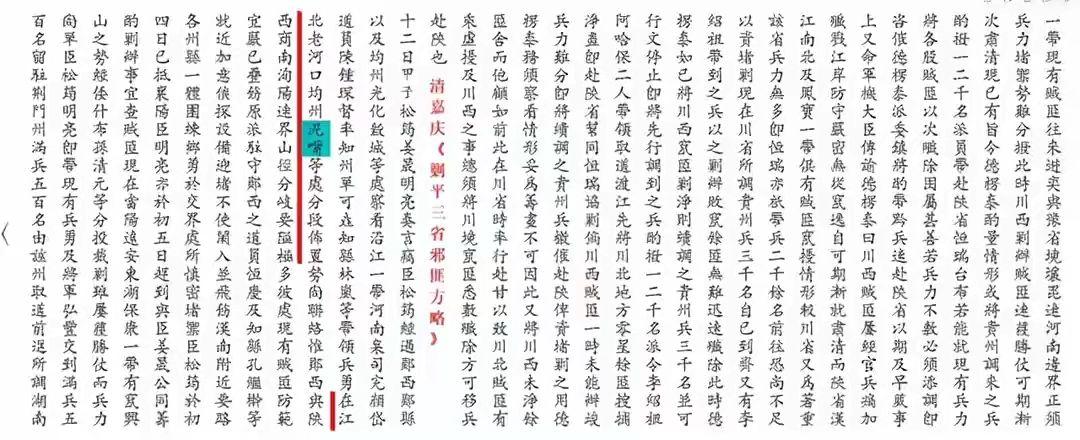 一帶現有賊匪往來逆奕與豫省境瀵毘連河南邊界正須
兵力堵禦勢難分撥此時川西剿辦賊匪連獲勝仗可期漸
次肅清現已有旨令德楞泰酌量情形或將貴州調來之兵
酌撥一二千名派員帶赴陝省恒瑞台布若能就現有兵力
將各股賊匪以次殲除固屬甚善若兵力不敷必須添調即
咨催德楞泰派委鎮將酌帶黔兵迅赴陝省以期及早蕆事
上又命軍機大臣傳諭德楞泰曰川西賊匪屢經官兵痛加
殲戮江岸防守嚴密無從竄逸自可期漸就肅清而陝省漢
江南北及鳳寶一帶俱有賊匪竄擾情形較川省又爲著重
該省兵力無多即恒瑞亦祇帶兵二千餘名前往恐尚不足
以資堵剿現在川省所調貴州兵三千名自已到齊又有李
紹祖帶到之兵以之剿辦敗竄餘匪無難迅速殲除此時德
楞泰如已將川西竄匪剿淨則續調之貴州兵三千名並可
行文停止即將先行調到之兵酌撥一二千名派令李紹祖
阿哈保二人帶領取道渡江先將川北地方零星餘匪搜捕
淨盡即赴陝省幫同恒瑞協剿倘川西賊匪一時未能辦竣
兵力難分即將續調之貴州兵嚴催赴陝俾資堵剿之用德
楞泰務須察看情形妥爲籌畫不可因此又將川西未淨餘
匪舍而他顧如前此在川省時率行赴甘以致川北賊匪有
乘虛擾及川西之事總須將川境竄匪悉數殲除方可移兵
赴陝也 清嘉庆《剿平三省邪匪方略》
十二日甲子松筠姜晟明亮奏言竊臣松筠經過鄖西鄖縣
以及均州光化穀城等處察看沿江一帶河南臬司完顏岱
道員陳鍾琛督率知州單可垚知縣林嵐等帶領兵勇在江
北老河口均州泥嘴等處分段佈置勢尚聯絡惟鄖西與陝
西商南洵陽連界山徑分岐要隘極多彼處現有賊匪防範
宜嚴已疊飭原派駐守鄖西之道員恒慶及知縣孔繼檊等
就近加意偵探設備迎堵不使闌入並飛飭漢南附近要路
各州縣一體團練鄉勇於交界處所慎密堵禦臣松筠於初
四日已抵襄陽臣明亮亦於初五日趕到與臣姜晟公同籌
酌剿辦事宜查賊匪現在當陽遠安東湖保康一帶有竄興
山之勢經倭什布孫清元等分投截剿雖屢獲勝仗而兵力
尚單臣松筠明亮即帶現有兵勇及將軍弘豐交到滿兵五
百名留駐荊門州滿兵五百名由該州取道前進所調湖南